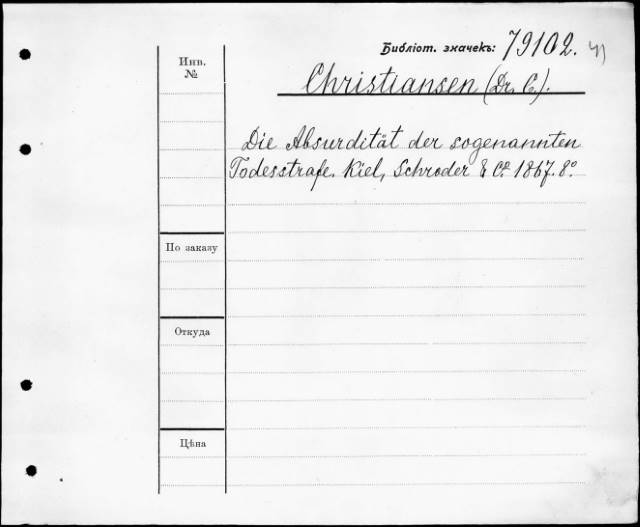 Библіот. значекъ: 79102.
Инв.
№
Christiansen (Dr. C.).
Die Absurdität der sogenannten
Todesstrafe. Kiel, Schroder & Cº 1867. 8º
По заказу
Откуда
Цѣна